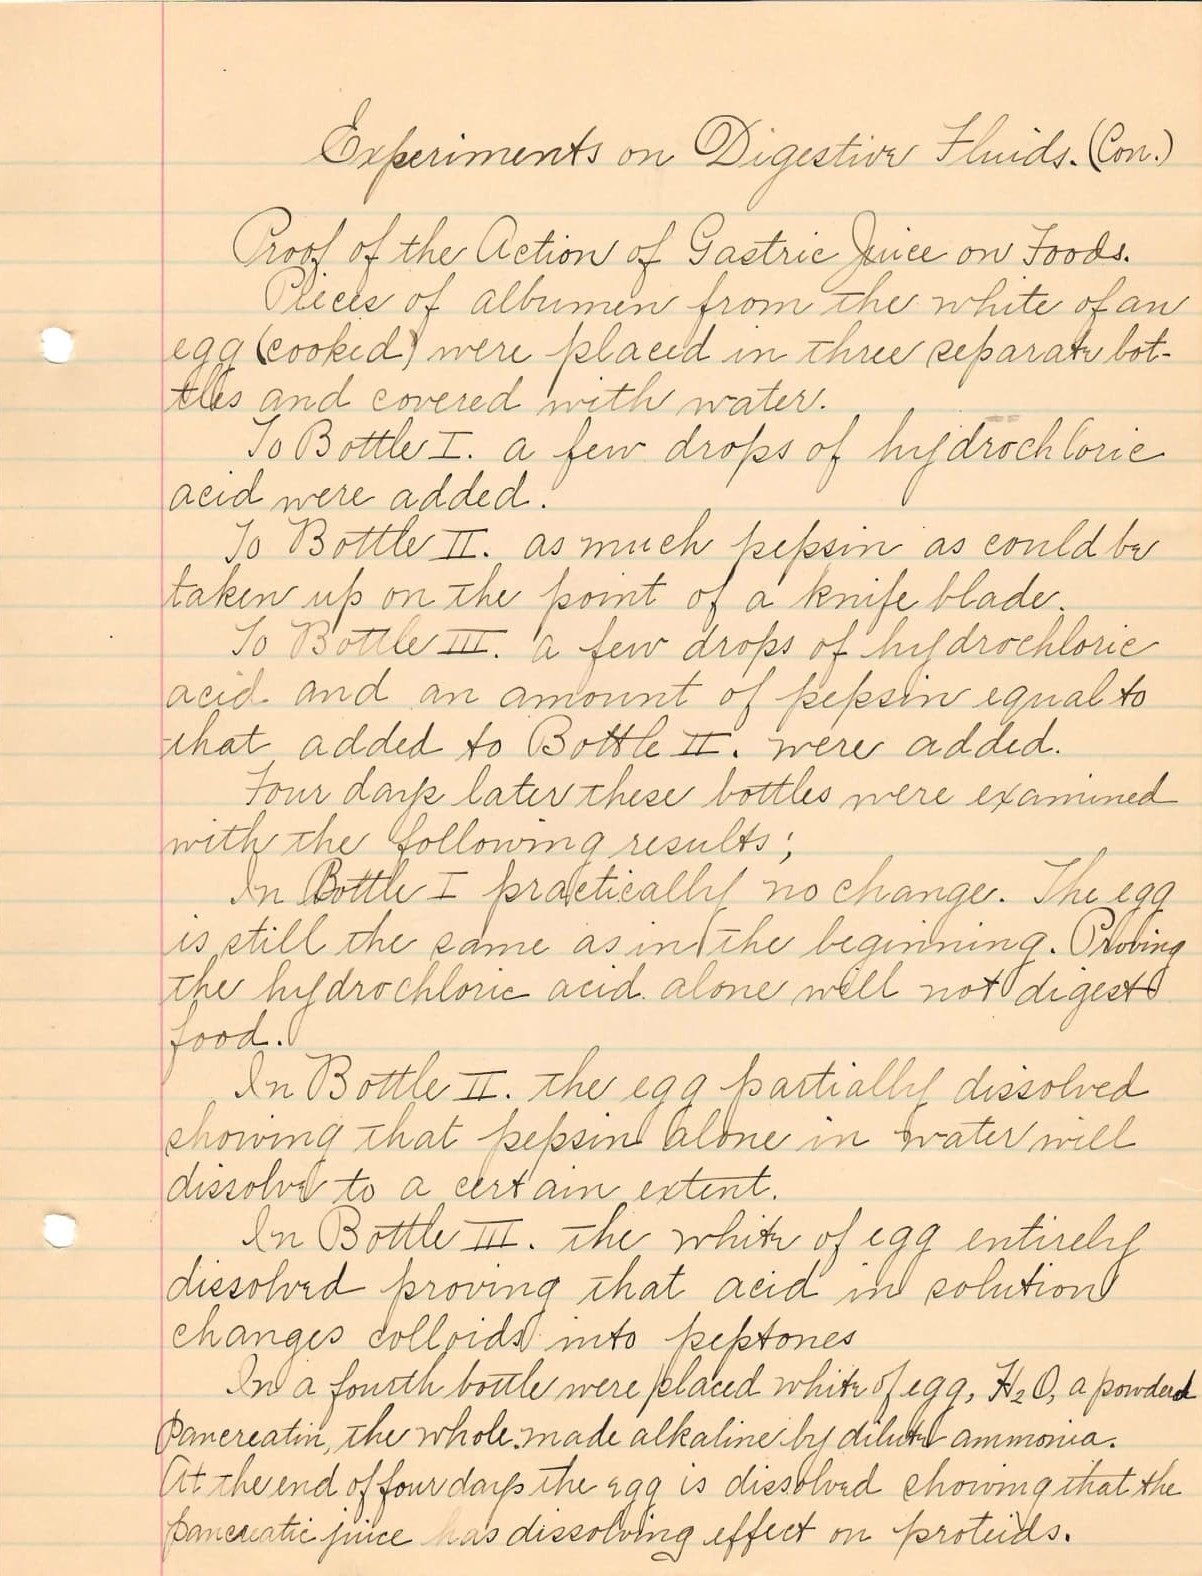 Experiments on Digestive Fluids. (Con.)
Proof of the Action of Gastric Juice on Foods.
Pieces of albumen from the white of an
egg (cooked) were placed in three separate bot-
tles and covered with water.
To Bottle I. a few drops of hydrochloric
acid were added.
To Bottle II. as much pepsin as could be
taken up on the point of a knife blade.
To Bottle III. a few drops of hydrochloric
acid and an amount of pepsin equal to
that added to Bottle II. were added.
Four days later these bottles were examined
with the following results;
In Bottle I practically no change. The egg
is still the same as in the beginning. Proving
the hydrochloric acid alone will not digest
food.
In Bottle II. the egg partially dissolved
showing that pepsin alone in water will
dissolve to a certain extent.
In Bottle III. the white of egg entirely
dissolved proving that acid in solution
changes colloids into peptones
In a fourth bottle were placed white of egg, H2O, a powdered
Pancreatin, the whole made alkaline by dilute ammonia.
At the end of four days the egg is dissolved showing that the
pancreatic juice has dissolving effect on proteids.